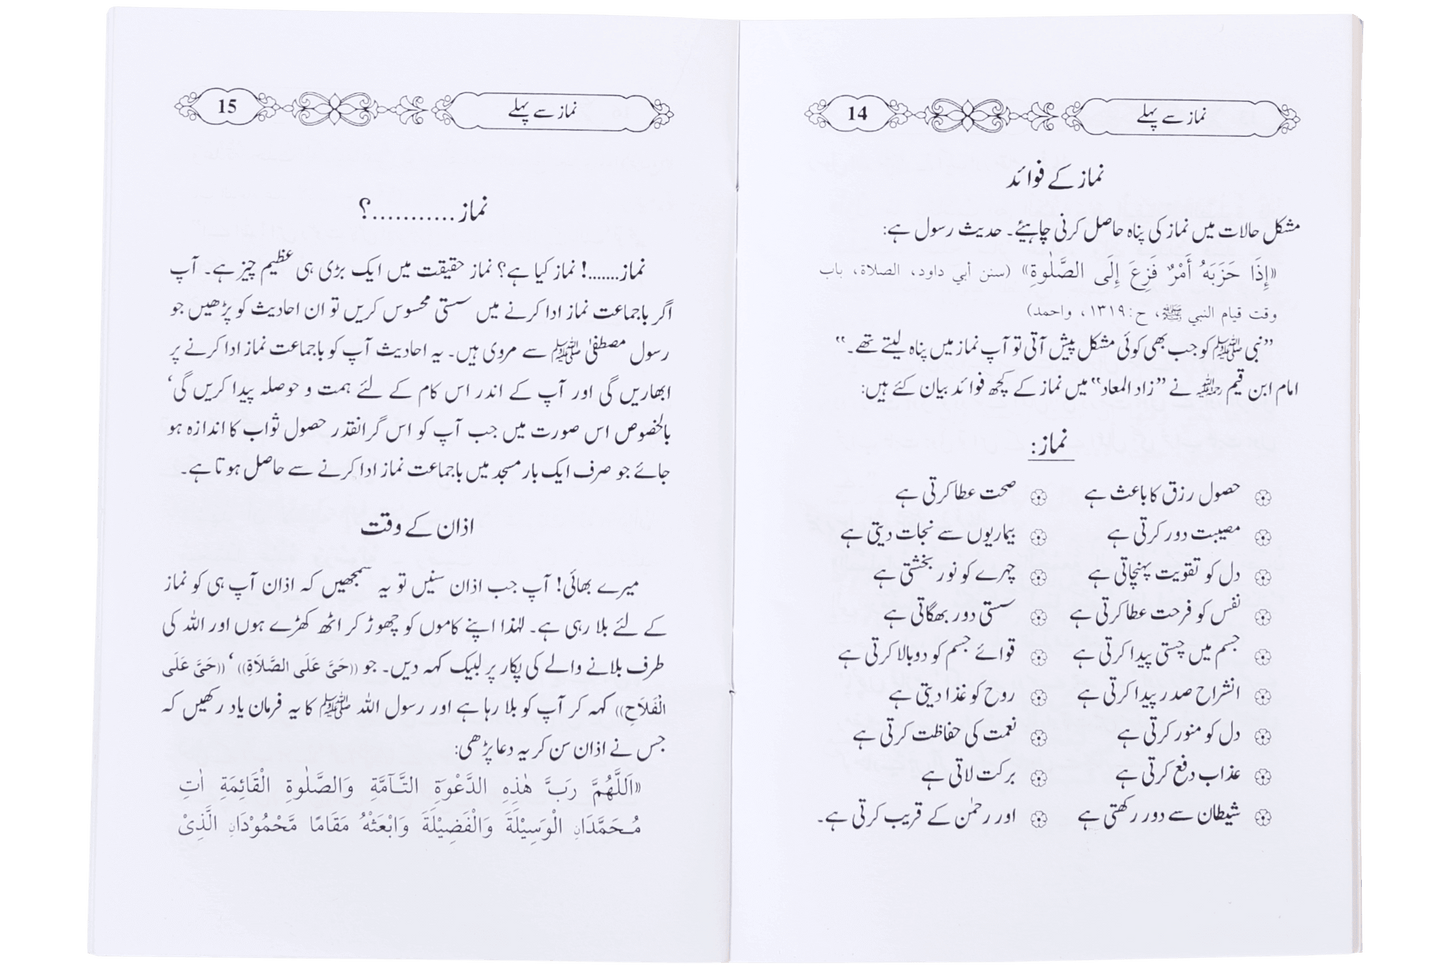 نماز سے پہلے
14
نماز کے فوائد
مشکل حالات میں نماز کی پناہ حاصل کرنی چاہیئے۔ حدیث رسول ہے:
«إِذَا حَزَبَهُ أَمْرٌ فَزِعَ إِلَى الصَّلٰوةِ» (سنن أبي داود، الصلاة، باب
وقت قيام النبي ﷺ، ح:١٣١٩، واحمد)
”نبی ﷺ کو جب بھی کوئی مشکل پیش آتی تو آپ نماز میں پناہ لیتے تھے۔“
امام ابن قیم رحمہ اللہ نے ”زاد المعاد“ میں نماز کے کچھ فوائد بیان کئے ہیں:
نماز:
حصول رزق کا باعث ہے صحت عطا کرتی ہے
مصیبت دور کرتی ہے بیماریوں سے نجات دیتی ہے
دل کو تقویت پہنچاتی ہے چہرے کو نور بخشتی ہے
نفس کو فرحت عطا کرتی ہے سستی دور بھگاتی ہے
جسم میں چستی پیدا کرتی ہے قوائے جسم کو دوبالا کرتی ہے
انشراح صدر پیدا کرتی ہے روح کو غذا دیتی ہے
دل کو منور کرتی ہے نعمت کی حفاظت کرتی ہے
عذاب دفع کرتی ہے برکت لاتی ہے
شیطان سے دور رکھتی ہے اور رحمٰن کے قریب کرتی ہے۔
نماز سے پہلے
15
نماز...........؟
نماز.......! نماز کیا ہے؟ نماز حقیقت میں ایک بڑی ہی عظیم چیز ہے۔ آپ
اگر باجماعت نماز ادا کرنے میں سستی محسوس کریں تو ان احادیث کو پڑھیں جو
رسول مصطفیٰ ﷺ سے مروی ہیں۔ یہ احادیث آپ کو باجماعت نماز ادا کرنے پر
ابھاریں گی اور آپ کے اندر اس کام کے لئے ہمت و حوصلہ پیدا کریں گی‘
بالخصوص اس صورت میں جب آپ کو اس گرانقدر حصول ثواب کا اندازہ ہو
جائے جو صرف ایک بار مسجد میں باجماعت نماز ادا کرنے سے حاصل ہوتا ہے۔
اذان کے وقت
میرے بھائی! آپ جب اذان سنیں تو یہ سمجھیں کہ اذان آپ ہی کو نماز
کے لئے بلا رہی ہے۔ لہٰذا اپنے کاموں کو چھوڑ کر اٹھ کھڑے ہوں اور اللہ کی
طرف بلانے والے کی پکار پر لبیک کہہ دیں۔ جو ((حَيَّ عَلَى الصَّلَاةِ))‘ ((حَيَّ عَلَى
الْفَلَاحِ)) کہہ کر آپ کو بلا رہا ہے اور رسول اللہ ﷺ کا یہ فرمان یاد رکھیں کہ
جس نے اذان سن کر یہ دعا پڑھی:
«اَللّٰهُمَّ رَبَّ هٰذِهِ الدَّعْوَةِ التَّآمَّةِ وَالصَّلٰوةِ الْقَائِمَةِ اٰتِ
مُحَمَّدَانِ الْوَسِيْلَةَ وَالْفَضِيْلَةَ وَابْعَثْهُ مَقَامًا مَّحْمُوْدَانِ الَّذِيْ